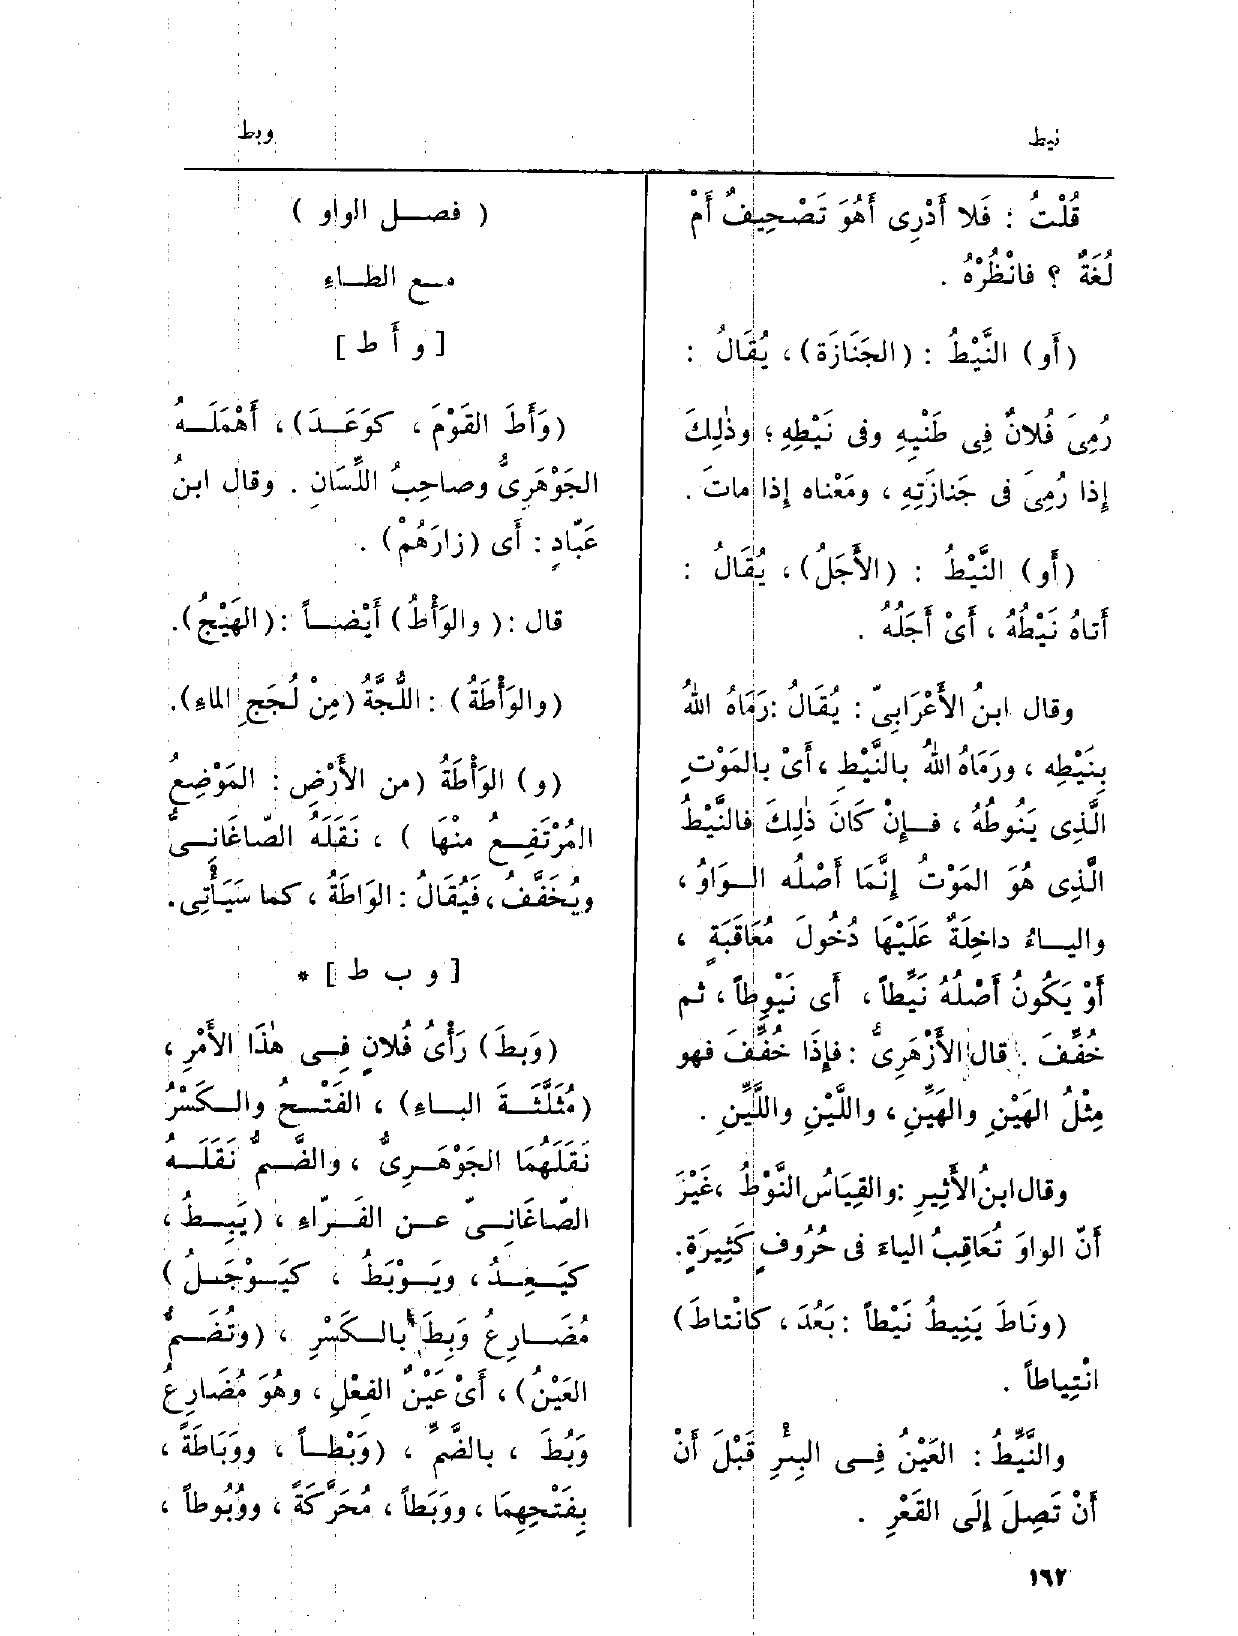 نيط
وبط
قُلْتُ : فَلا أَدْرِى أَهُوَ تَصْحِيفٌ أَمْ
لُغَةٌ ؟ فانْظُرْهُ .
(أَو) النَّيْطُ : (الجَنَازَة) ، يُقَالُ :
رُمِىَ فُلانٌ فِى طَنْيِهِ وفى نَيْطِهِ ؛ وذٰلِكَ
إذا رُمِىَ فى جَنازَتِهِ ، ومَعْناه إذا ماتَ .
(أَو) النَّيْطُ : (الأَجَلُ) ، يُقَالُ :
أَتاهُ نَيْطُهُ ، أَىْ أَجَلُهُ .
وقال ابنُ الأَعْرَابِىّ : يُقَالُ : رَمَاهُ اللهُ
بِنَيْطِه ، ورَمَاهُ اللهُ بالنَّيْطِ ، أَىْ بالمَوْتِ
الَّذِى يَنُوطُهُ ، فــإِنْ كَانَ ذٰلِكَ فالنَّيْطُ
الَّذِى هُوَ المَوْتُ إِنَّمَا أَصْلُه الــوَاوُ ،
واليــاءُ داخِلَةٌ عَلَيْهَا دُخُولَ مُعَاقَبَةٍ ،
أَوْ يَكُونُ أَصْلُهُ نَيِّطاً ، أَى نَيْوِطاً ، ثم
خُفِّفَ . قال الأَزْهَرِىُّ : فإِذَا خفِّفَ فهو
مِثْلُ الهَيْنِ والهَيِّنِ ، واللَّيْنِ واللَّيِّنِ .
وقال ابنُ الأَثِيرِ : والقِيَاسُ النَّوْطُ ، غَيْرَ
أَنَّ الواوَ تُعَاقِبُ الياءَ فى حُرُوفٍ كَثِيرَةٍ .
(ونَاطَ يَنِيطُ نَيْطاً : بَعُدَ ، كانْتاطَ)
انْتِياطاً .
والنَّيِّطُ : العَيْنُ فِــى البِئْرِ قَبْلَ أَنْ
أَنْ تَصِلَ إِلَى القَعْرِ .
( فصــل الواو )
مــع الطــاء
[ و أ ط ]
(وَأَطَ القَوْمَ ، كوَعَــدَ) ، أَهْمَلَــهُ
الجَوْهَرِىُّ وصاحِبُ اللِّسَانِ . وقال ابنُ
عَبّادٍ : أَى (زارَهُمْ) .
قال : (والوَأْطُ) أَيْضــاً : (الهَيْجُ) .
(والوَأْطَةُ) : اللُّجَّةُ (مِنْ لُجَجِ الماءِ) .
(و) الوَأْطَةُ (من الأَرْضِ : المَوْضِعُ
المُرْتَفِــعُ منْهَا ) ، نَقَلَهُ الصّاغَانِــىُّ
ويُخَفَّفُ ، فَيُقَالُ : الوَاطَةُ ، كما سَيَأْتِى .
[ و ب ط ] *
(وَبَطَ) رَأْىُ فُلانٍ فِــى هٰذَا الأَمْرِ ،
(مُثَلَّثَــةَ البــاءِ) ، الفَتْــحُ والــكَسْرُ
نَقَلَهُمَا الجَوْهَــرِىُّ ، والضَّــمُّ نَقَلَــهُ
الصّاغَانِــىّ عــن الفَــرّاءِ ، (يَبِــطُ ،
كيَــعِــدُ ، ويَــوْبَطُ ، كيَــوْجَــلُ )
مُضَــارِعُ وَبِطَ بالــكَسْرِ ، (وتُضَــمُّ
العَيْنُ) ، أَىْ عَيْنُ الفِعْلِ ، وهُوَ مُضَارِعُ
وَبُطَ ، بالضَّمِّ ، (وَبْطــاً ، ووَبَاطَةً ،
بِفَتْحِهِمَا ، ووَبَطاً ، مُحَرَّكَةً ، ووُبُوطاً ،
١٦٢